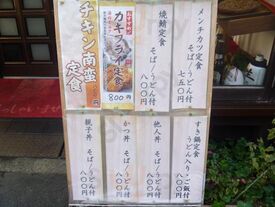 メンチカツ定食
そば/うどん付
七五〇円
焼鯖定食
そば/うどん付
八〇〇円
おすすめ
カキフライ定食
800円
チキン南蛮
定食
すき鍋定食
うどん入り・ご飯付
八〇〇円
他人丼
そば/うどん付
八〇〇円
かつ丼
そば/うどん付
八〇〇円
親子丼
そば/うどん付
八〇〇円